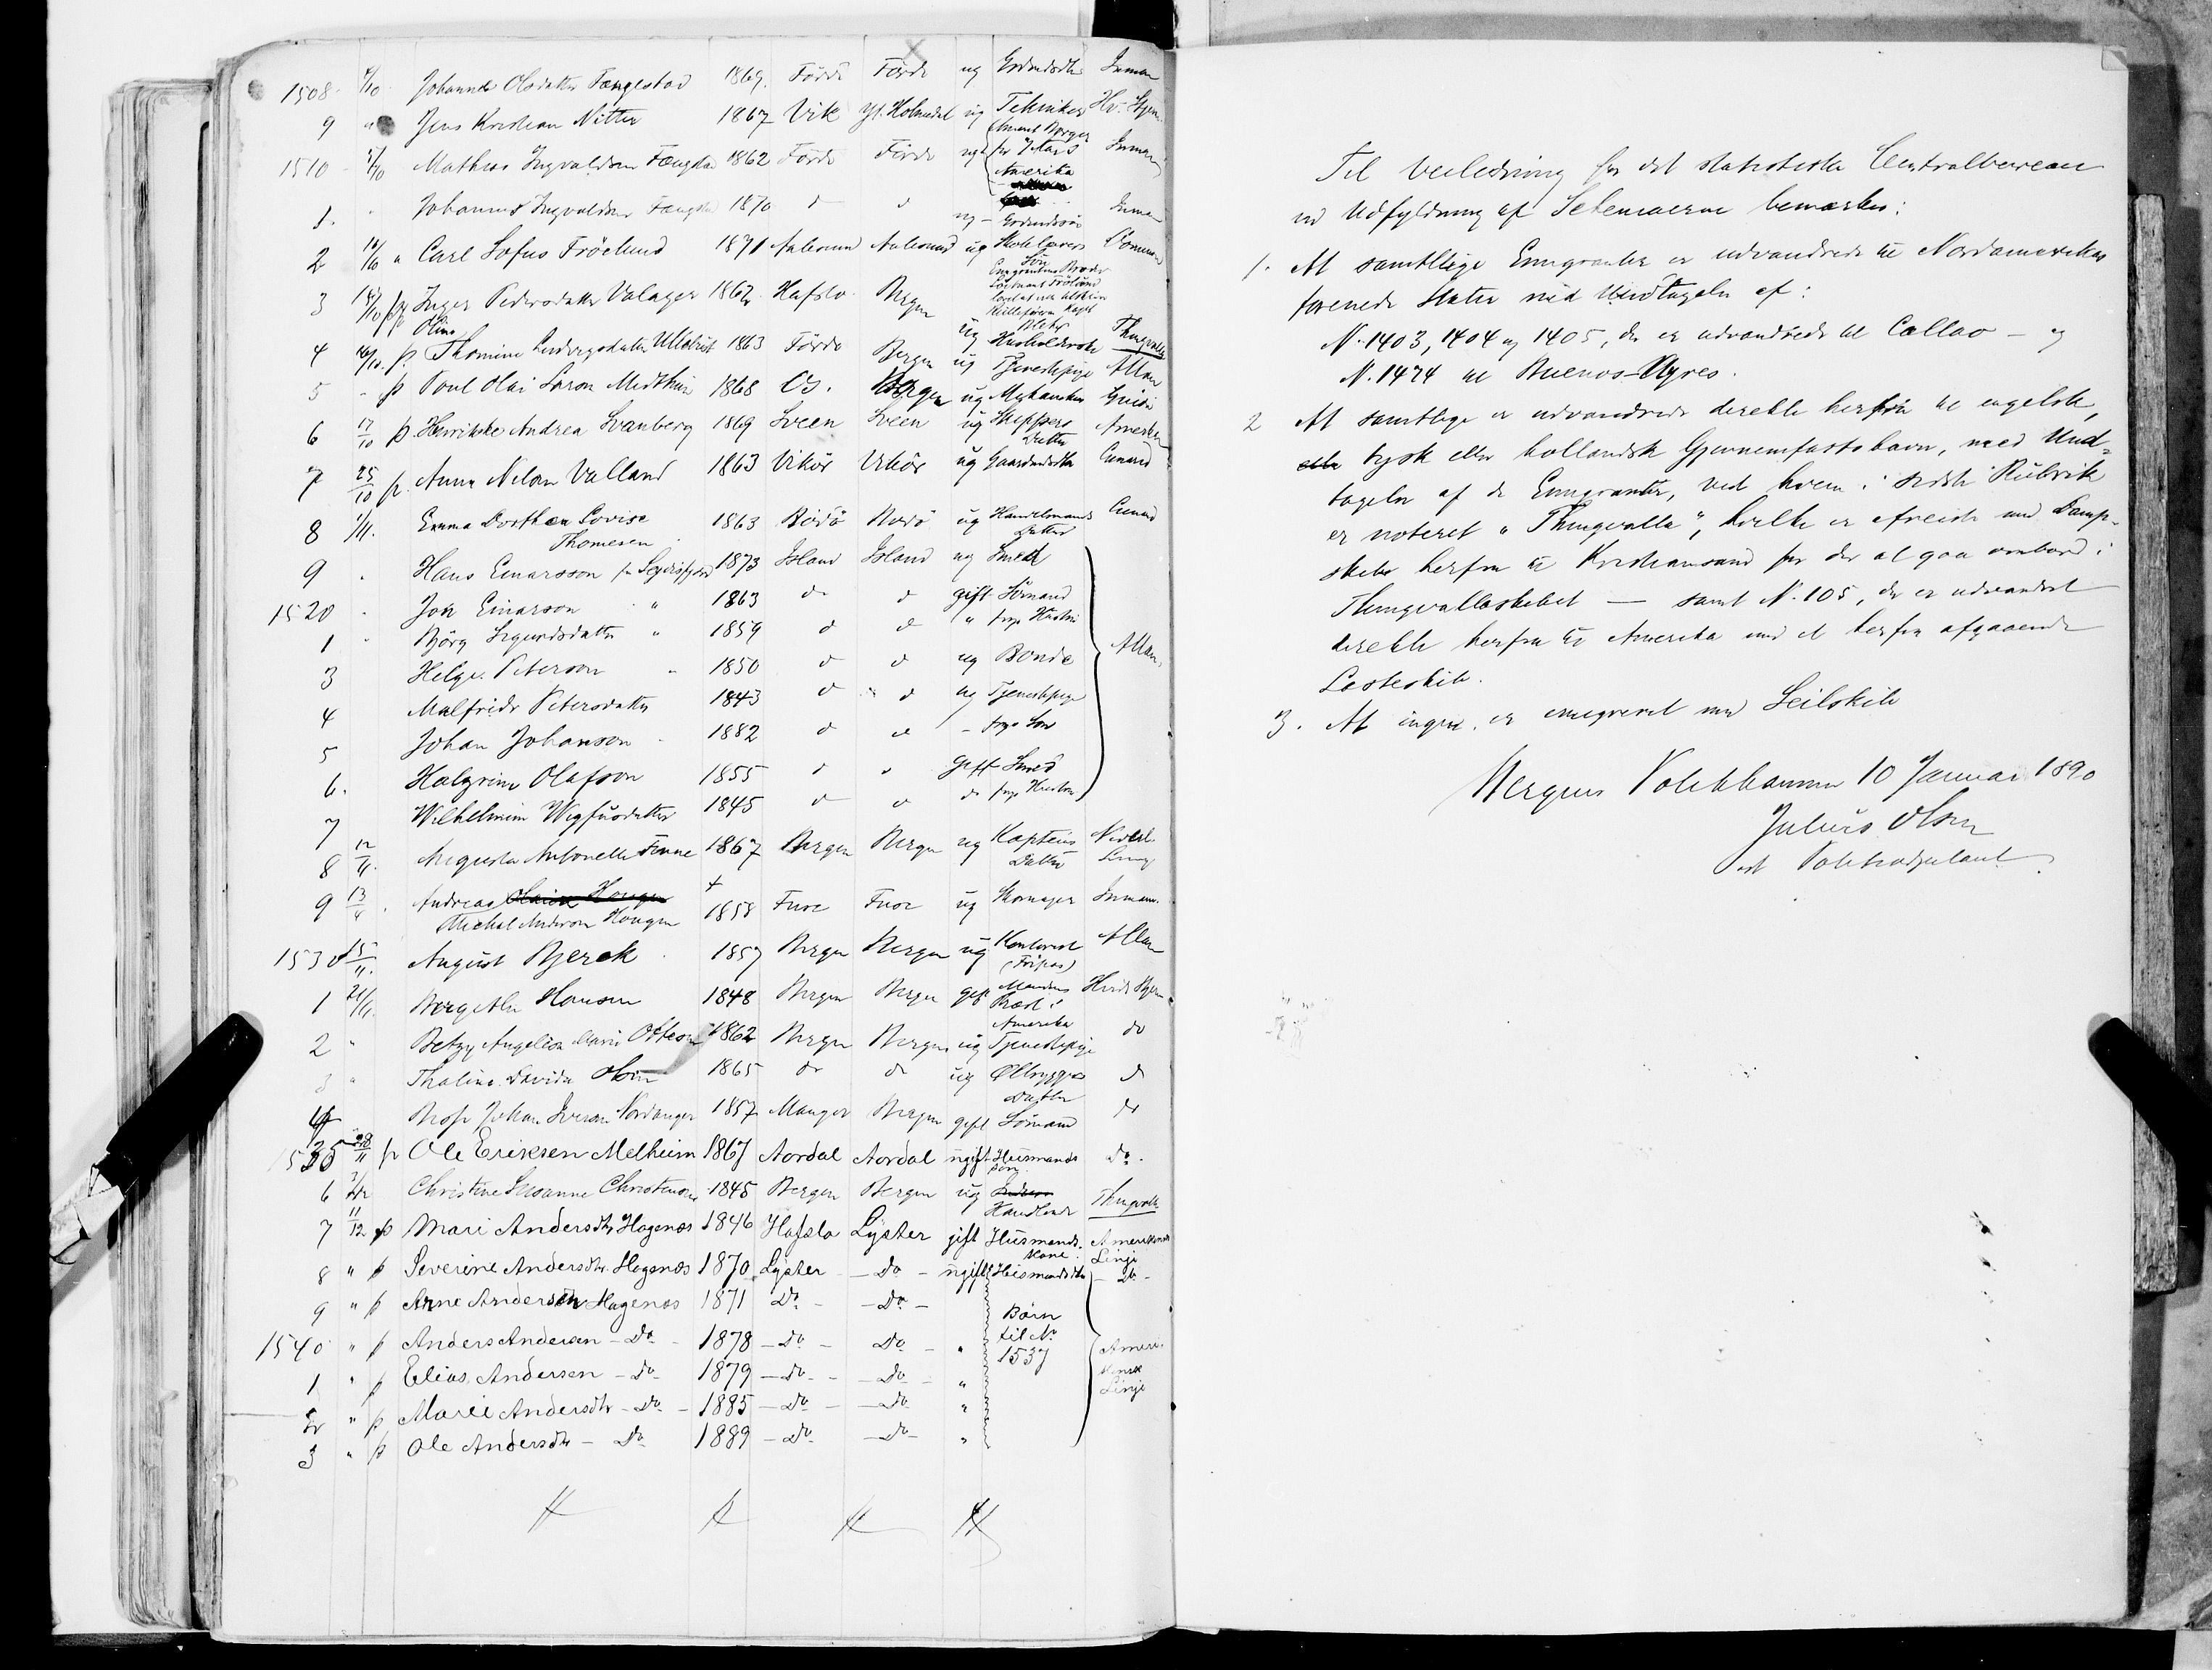 1508 Johanne Olsdatter Fængestad 1869 Förde Förde ug Inman
9 " Jens Kristian Nitter 1867 Vik Yt. Holmedal ug Tekniker Hv. Stjern
1510 Mathias Ingvaldsen Fængstad 1862 Förde Förde ugt Amerik Borger for Aars Amerika Inman
1. " Johannes Ingvaldsen Fængstad 1870 d d ug - Gdmdssön Inman
2 10/10 " Carl Sofus Fröelund 1871 Aalesund Aalesund ug Skolelærers Sön Dominion
3 14/10 p Inger Pedersdatter Valager 1862 Hafslo Bergen ug Husholderske Thingvalla
Oline
4 16/10 p. Thomine Ludvigsdatter Ullelrist 1863 Förde Bergen ug Tjenestepige Allan
5 - p Poul Olai Larson Midthun 1868 Os. Bergen ug Mekaniker Guion
6 17/10 p. Henrikke Andrea Svanberg 1869 Sveen Sveen ug Skippers Datter Amerikan
7 25/10 p. Anna Nilsen Valland 1863 Vikör Vikör ug Gaardmdsdtr Cunard
8 1/11. Emma Dorthea Lovise 1863 Bodö Bodö ug Handelsmands Datter Cunard
Thomesen
9 . Hans Einarsson fra Seydisfjord 1873 Island Island ug Smed
1520 . Jon Einarson " 1863 do d gift Sömand
1 " Björg Sigurdsdatter " 1859 d d " frge Hustru
3 Helge Peterson " 1850 d d ug Bonde Allan
4 Malfridr Petersdatter 1843 d d ug Tjenestepige
5 Johan Johanson 1882 d d - frge Sön
6. Halgrim Olafson 1855 d " gift Smed
7 Wilhelmine Wigfusdatter 1845 d d do frge Hustru
8 12/11. Augusta Antonette Finne 1867 Bergen Bergen ug Kapteins Datter Norddl. Lloyd
9 13/11. Andreas 1858 Fure Fure ug Skomager Inman.
Michal Anderson Hougen
1530 15/11. August Bjerck 1857 Bergen Bergen ug Kontorist (Fripas) Allan
1 21/11. Bergithe Hansen 1848 Bergen Bergen gift Manden Bæd i Amerika Hvide Stjerne
2 " Betzy Angelica Marie Ottesen 1862 Bergen Bergen ug Tjenestepige do
3 " Thaline Davida Olsen 1865 do do ug Ølbrygger Datter d
4 Johan Iversen Nordanger 1857 Manger Bergen gift Sömand do
1535 28/11 p Ole Eriksen Melheim 1867 Aardal Aardal ugift Husmands sön Do.
6 3/12 Christine Susanne Christensen 1845 Bergen Bergen ug Handlende Thingvalla
7 11/12 p Mari Andersdtr Hagenæs 1846 Hafslo Lyster gift Husmands. kone. Amerikansk Linje
8 " p Severine Andersdtr. Hagenæs 1870 Lyster - Do - ugift Husmandsdtr - Do -
9 " p Arne Andersdtr Hagenæs 1871 Do - - Do - Børn
1540 " p Anders Andersen - Do - 1878 - Do - Do - " til No 1537 Ameri-
1 " p Elias Andersen - Do - 1879 - Do - - Do - " kansk
2 " p Marie Andersdtr - Do - 1885 - Do - - Do " Linje
3 " p Ole Andersdtr - Do 1889 - Do - - Do - "
Til Veiledning for det statistiske Centralbureau
ved Udfyldning af Schemaerne bemærkes:
1. At samtllige Emigranter er udvandrede til Nordamerikas
forenede Stater med Undtagelse af:
N. 1403, 1404 og 1405, der er udvandrede til Callao - og
N. 1474 til Buenos-Ayres.
2 At samtlige er udvandrede direkte herfra til engelsk,
eller tysk eller hollandsk Gjennemfartshavn, med Und-
tagelse af de Emigranter, ved hvem i sidste Rubrik
er noteret "Thingvalla", hvilke er afreiste med Damp-
skibe herfra til Kristiansand for der at gaa ombord i
Thingvallaskibet - samt N. 105, der er udvandret
direkte herfra til Amerika med et herfra afgaaende
Lasteskib.
3. At ingen er emigreret med Seilskib
Bergens Politikammer 10 Januar 1890
Julius Olsen
Politiadjutant